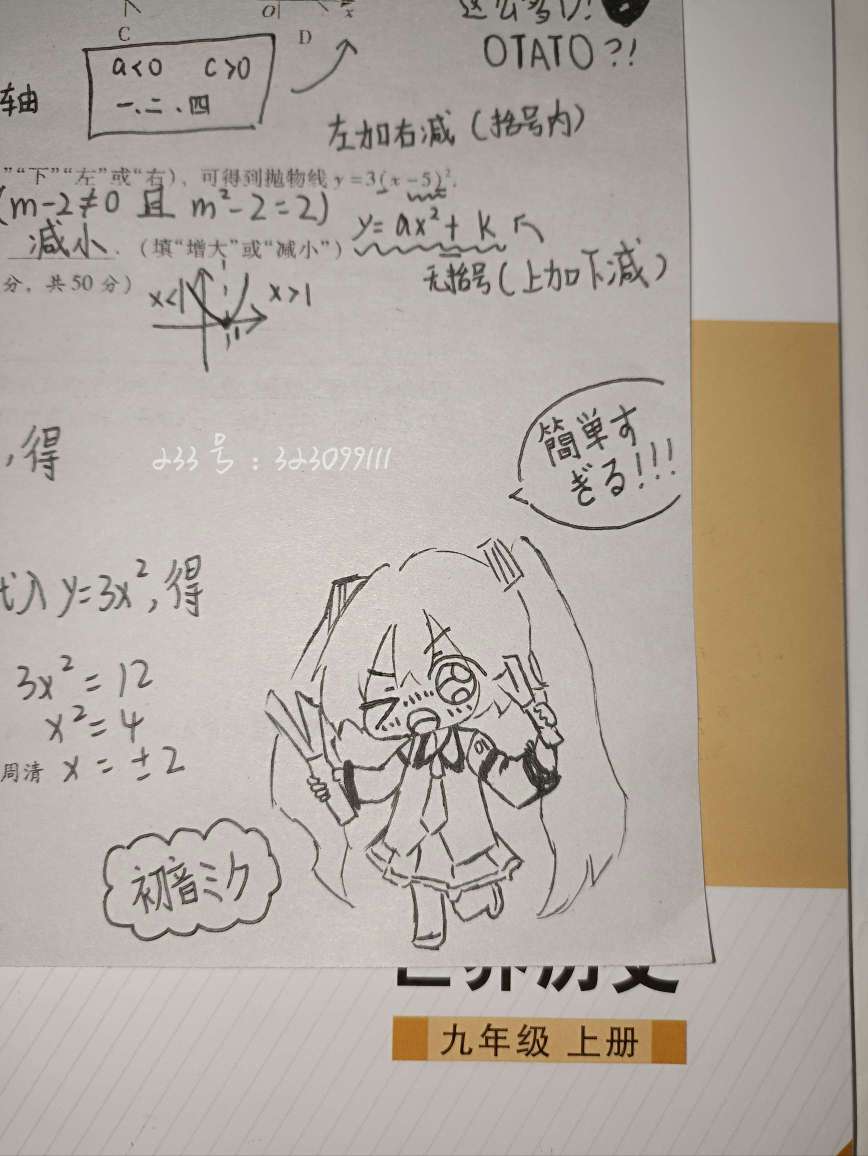 C
O
x
D
OTATO?!
a<0 c>0
一、二、四
轴
左加右减（括号内）
”“下”“左”或“右），可得到抛物线 y=3(x-5)².
(m-2≠0 且 m²-2=2)
y=ax²+k
减小.（填“增大”或“减小”）
无括号（上加下减）
分，共50分）
x<1
x>1
1
簡単す
ぎる!!!
,得
233号：323099111
代入y=3x²,得
3x²=12
x²=4
周清 x=±2
初音ミク
世界历史
九年级 上册